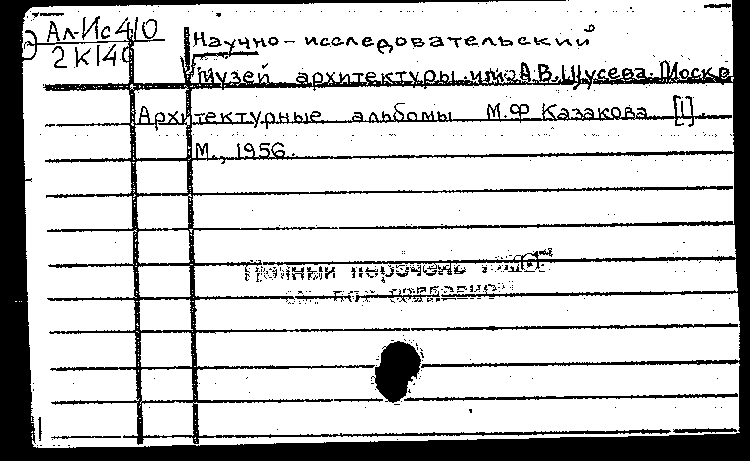 Ал-Ис 410
2К140
Научно-исследовательский
Музей архитектуры им. А.В.Щусева. Москв
Архитектурные альбомы М.Ф Казакова [1].
М., 1956.
Полный перечень